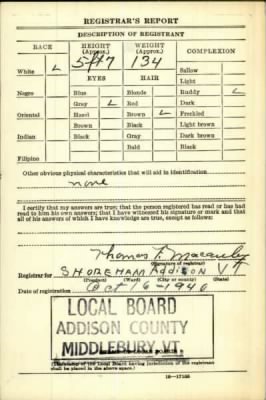 REGISTRAR'S REPORT
DESCRIPTION OF REGISTRANT
RACE HEIGHT (Approx.) WEIGHT (Approx.) COMPLEXION
5 ft 7 134
White ✓ Sallow
EYES HAIR Light
Negro Blue Blonde Ruddy ✓
Gray ✓ Red Dark
Oriental Hazel Brown ✓ Freckled
Brown Black Light brown
Indian Black Gray Dark brown
Bald Black
Filipino
Other obvious physical characteristics that will aid in identification
none
I certify that my answers are true; that the person registered has read or has had
read to him his own answers; that I have witnessed his signature or mark and that
all of his answers of which I have knowledge are true, except as follows:
Thomas F. Macauley
(Signature of registrar)
Registrar for SHOREHAM Addison VT
(Precinct) (Ward) (City or county) (State)
Date of registration Oct 16 - 1940
LOCAL BOARD
ADDISON COUNTY
MIDDLEBURY, VT.
of the Local Board having jurisdiction of the registrant
shall be placed in the above space.)
16—17105